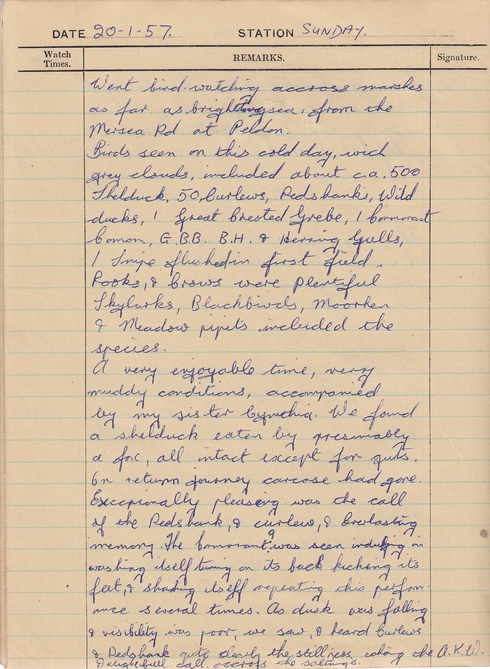 DATE 20-1-57. STATION SUNDAY.
Watch Times. REMARKS. Signature.
Went bird-watching accross marshes
as far as brightlingsea, from the
Mersea Rd at Peldon.
Birds seen on this cold day, with
grey clouds, included about c.a. 500
Shelduck, 50 Curlews, Redshanks, Wild
ducks, 1 Great Crested Grebe, 1 Cormorant
Comon, G.B.B. B.H. & Herring Gulls,
1 Snipe flushed in first field.
Rooks, & Crows were plentiful
Skylarks, Blackbirds, Moorhen
& Meadow pipits included the
species.
A very enjoyable time, very
muddy conditions, accompanied
by my sister Cynthia. We found
a shelduck eaten by presumably
a fox, all intact except for guts.
On return journey carcose had gone.
Exceptionally pleasing was the call
of the Redshank, & curlew, & Everlasting
memory. The Cormorant was seen indulging in
washing itself turning on its back kicking its
feet, & shaking itself repeating this perform-
ance several times. As dusk was falling
& visibility was poor, we saw, & heard Curlews
& Redshank quite clearly the stillness, echoing the A.K.W.
Delightfull call accross the saltings.